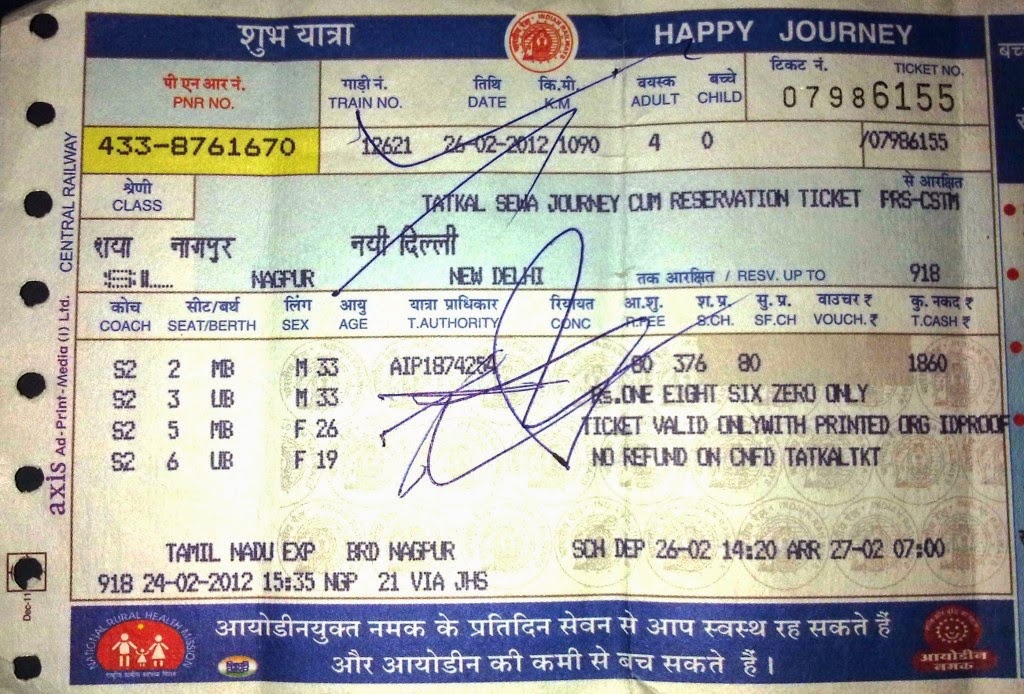 शुभ यात्रा HAPPY JOURNEY
पी एन आर नं. गाड़ी नं. तिथि कि.मी. वयस्क बच्चे टिकट नं. TICKET NO.
PNR NO. TRAIN NO. DATE K.M ADULT CHILD 07986155
433-8761670 12621 26-02-2012 1090 4 0 /07986155
श्रेणी से आरक्षित
CLASS TATKAL SEWA JOURNEY CUM RESERVATION TICKET PRS-CSTM
शया नागपुर नयी दिल्ली
SL NAGPUR NEW DELHI तक आरक्षित / RESV. UP TO 918
कोच सीट/बर्थ लिंग आयु यात्रा प्राधिकार रियायत आ.शु. श.प्र. सु.प्र. वाउचर ₹ कु. नकद ₹
COACH SEAT/BERTH SEX AGE T.AUTHORITY CONC R.FEE S.CH. SF.CH VOUCH.₹ T.CASH ₹
S2 2 MB M 33 AIP1874254 80 376 80 1860
S2 3 UB M 33 Rs.ONE EIGHT SIX ZERO ONLY
S2 5 MB F 26 TICKET VALID ONLYWITH PRINTED ORG IDPROOF
S2 6 UB F 19 NO REFUND ON CNFD TATKALTKT
TAMIL NADU EXP BRD NAGPUR SCH DEP 26-02 14:20 ARR 27-02 07:00
918 24-02-2012 15:35 NGP 21 VIA JHS
आयोडीनयुक्त नमक के प्रतिदिन सेवन से आप स्वस्थ रह सकते हैं
और आयोडीन की कमी से बच सकते हैं।
NATIONAL RURAL HEALTH MISSION
आयोडीन
नमक
CENTRAL RAILWAY
axis Ad-Print-Media (I) Ltd.
Dec-11
INDIAN RAILWAYS